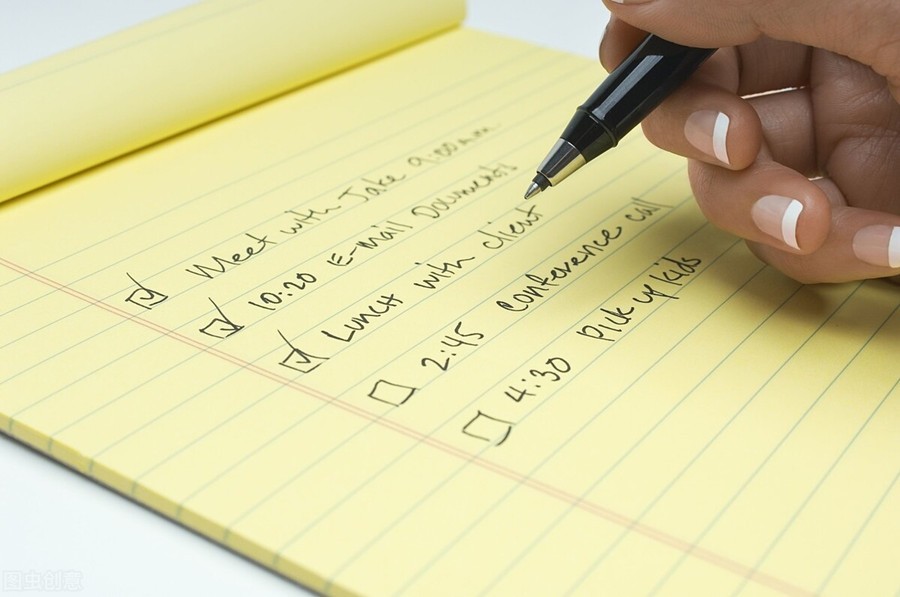 ☑ Meet with Jake 9:00am
☑ 10:20 E-mail Documents
☑ Lunch with client
☐ 2:45 Conference call
☐ 4:30 Pick up kids
图虫创意